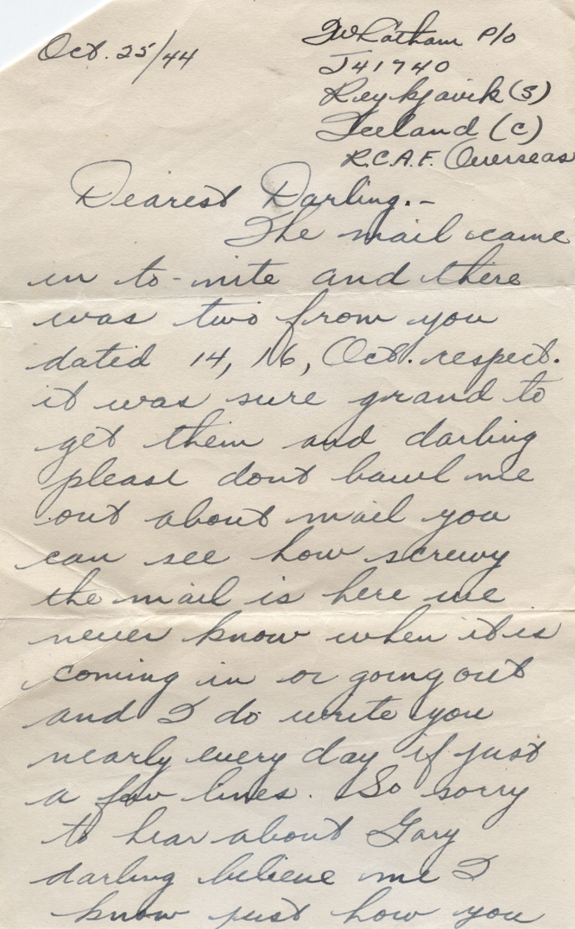 Oct. 25/44
JW Latham P/O
J41740
Reykjavik (S)
Iceland (C)
R.C.A.F. Overseas
Dearest Darling.-
The mail came
in to-nite and there
was two from you
dated 14, 16, Oct. respect.
it was sure grand to
get them and darling
please dont bawl me
out about mail you
can see how screwy
the mail is here we
never know when it is
coming in or going out
and I do write you
nearly every day if just
a few lines. So sorry
to hear about Gary
darling believe me I
know just how you